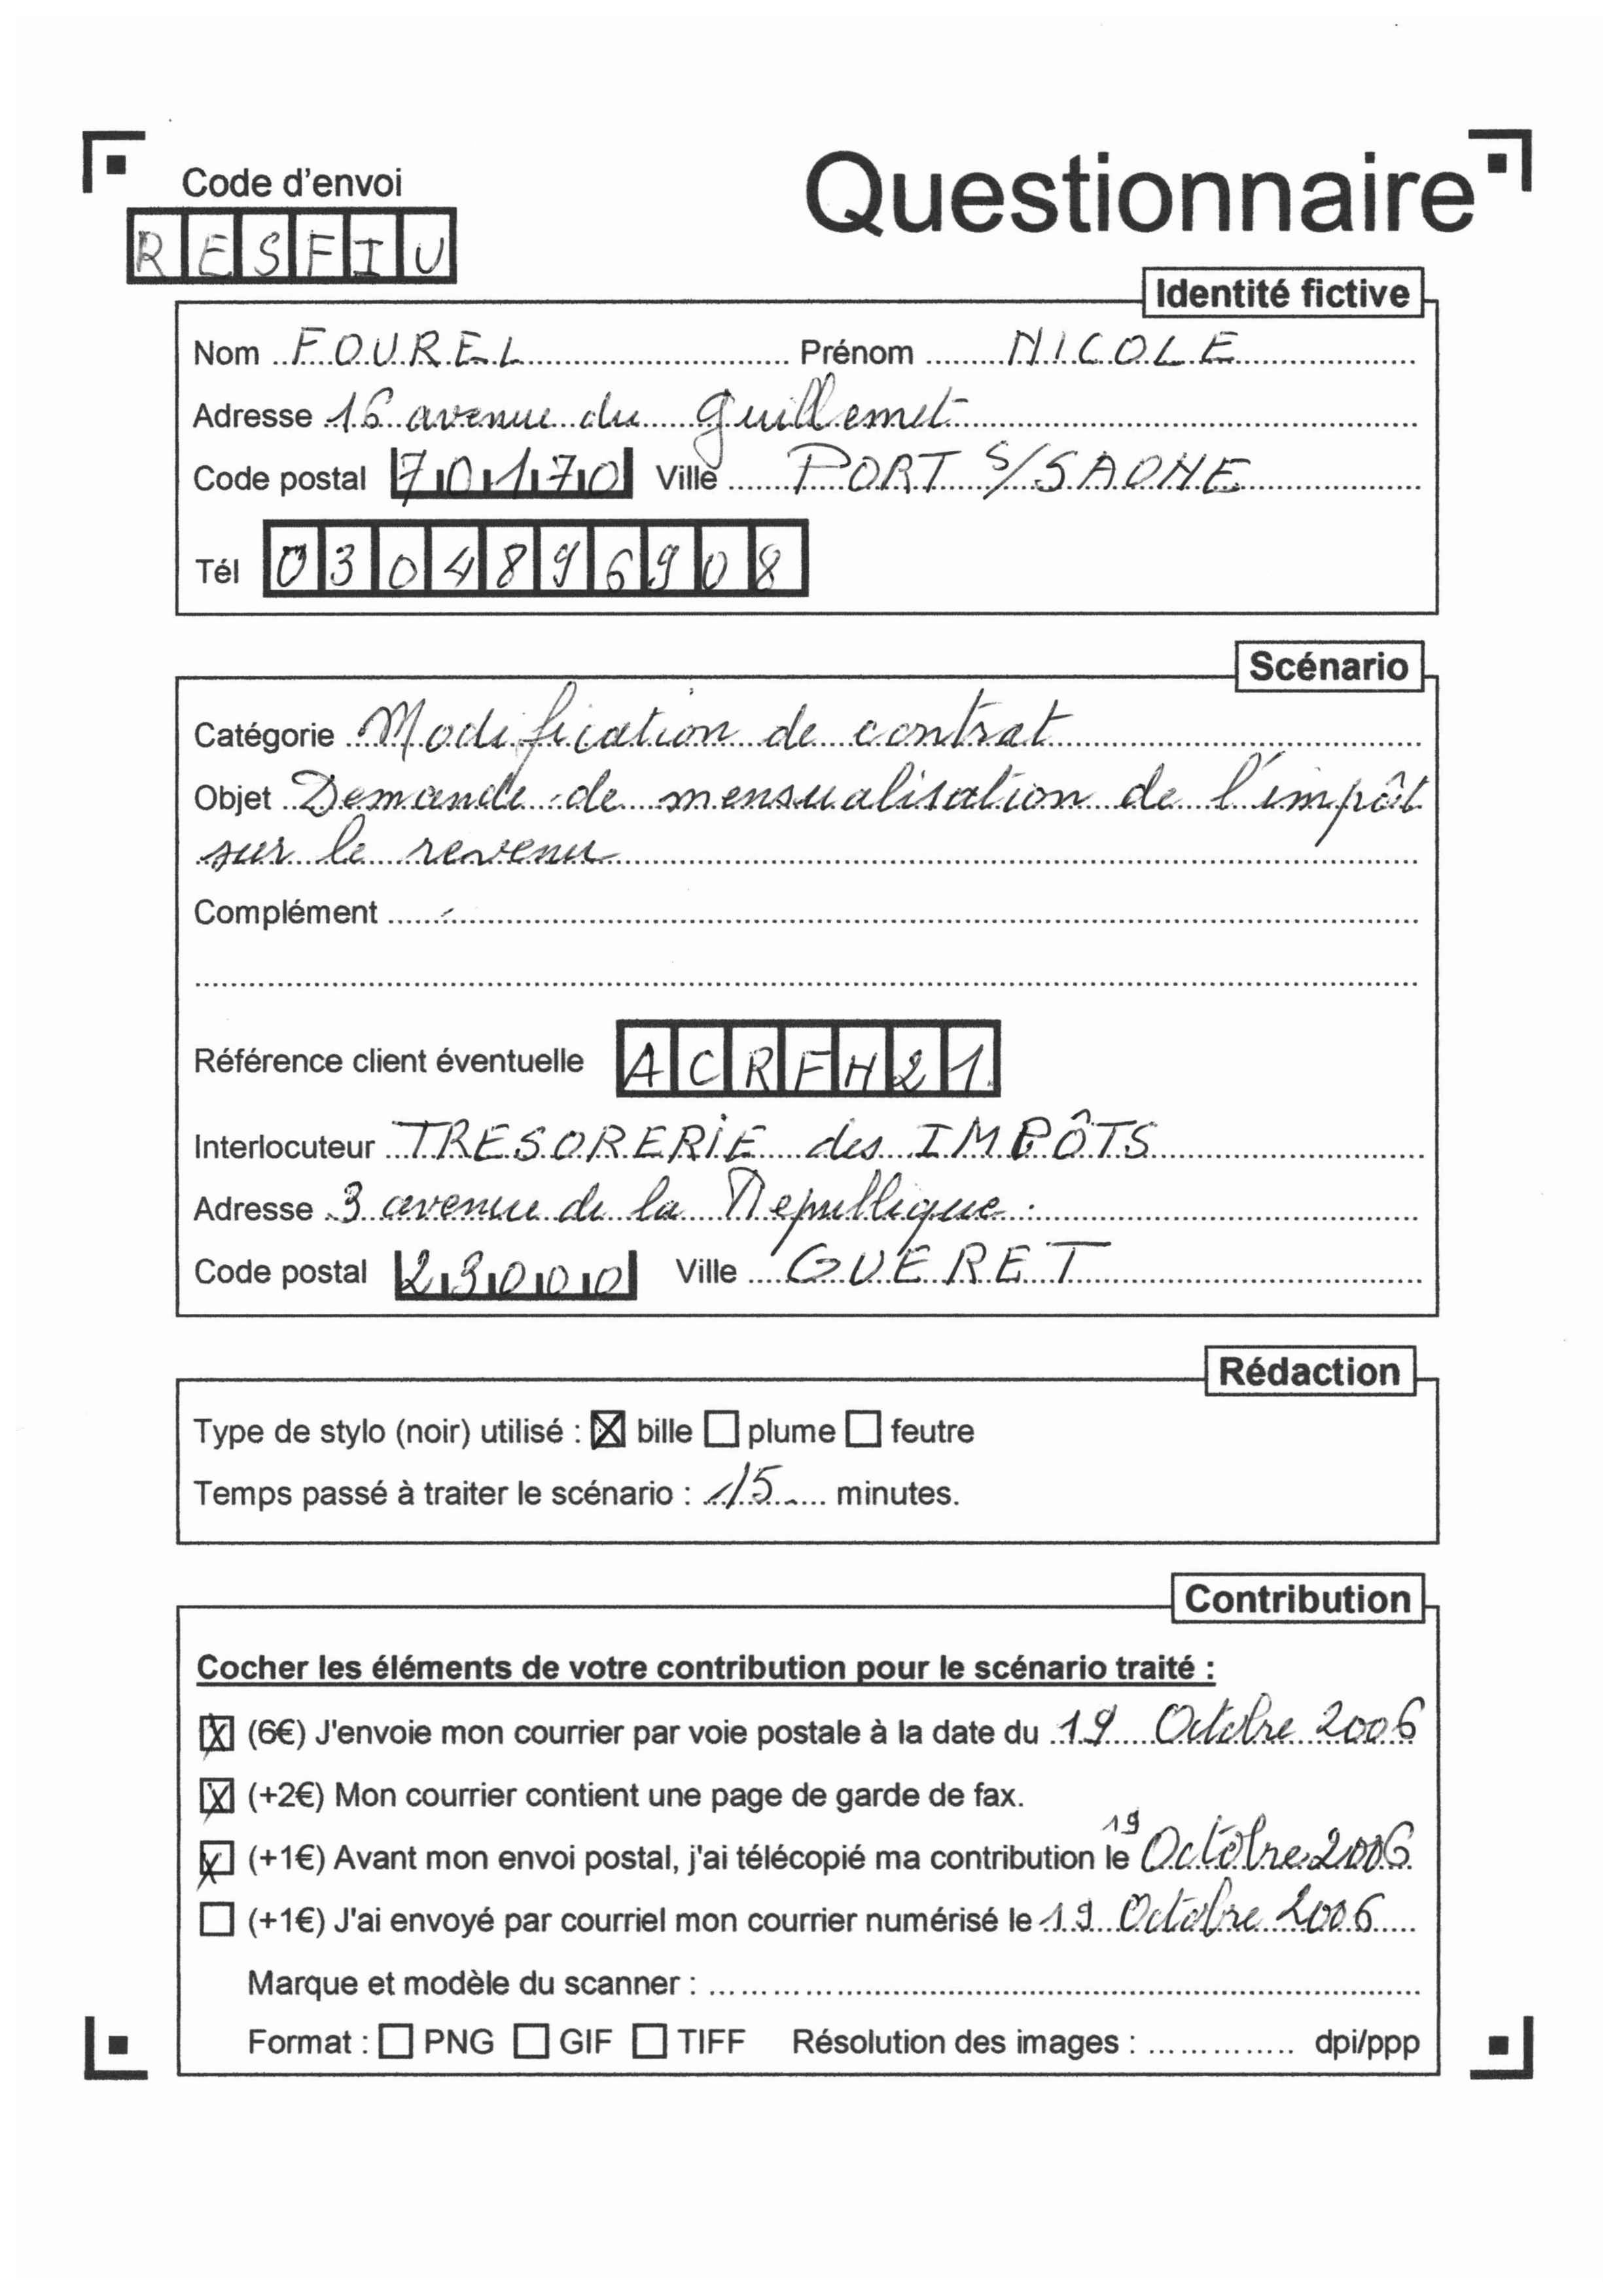 Code d'envoi
Questionnaire
RESFIU
Identité fictive
Nom FOUREL Prénom NICOLE
Adresse 16 avenue du guillemet
Code postal 70170 Ville PORT S/SAONE
Tél 0304896908
Scénario
Catégorie Modification de contrat
Objet Demande de mensualisation de l'impôt
sur le revenu
Complément
Référence client éventuelle ACRFH21
Interlocuteur TRESORERIE des IMPÔTS
Adresse 3 avenue de la République
Code postal 23000 Ville GUERET
Rédaction
Type de stylo (noir) utilisé : ☒ bille ☐ plume ☐ feutre
Temps passé à traiter le scénario : 15 minutes.
Contribution
Cocher les éléments de votre contribution pour le scénario traité :
☒ (6€) J'envoie mon courrier par voie postale à la date du 19 Octobre 2006
☒ (+2€) Mon courrier contient une page de garde de fax.
☒ (+1€) Avant mon envoi postal, j'ai télécopié ma contribution le 19 Octobre 2006
☐ (+1€) J'ai envoyé par courriel mon courrier numérisé le 19 Octobre 2006
Marque et modèle du scanner :
Format : ☐ PNG ☐ GIF ☐ TIFF Résolution des images : dpi/ppp